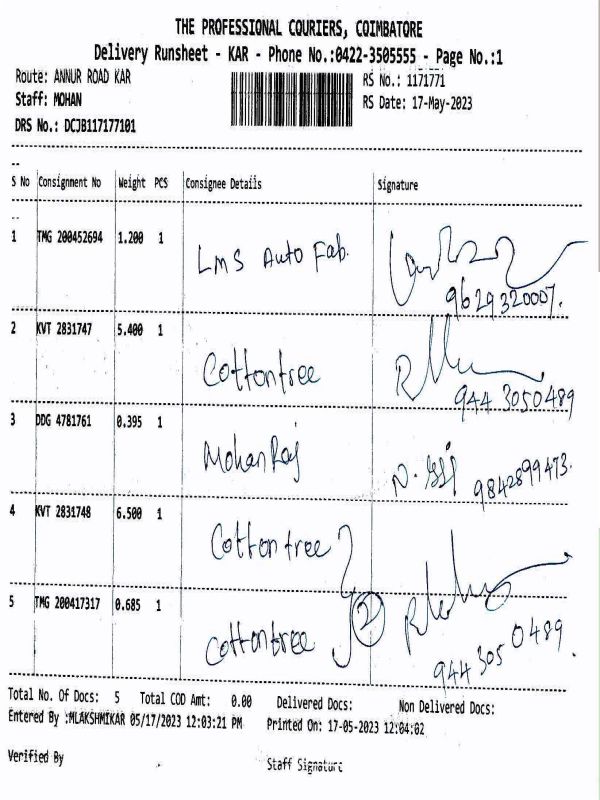 THE PROFESSIONAL COURIERS, COIMBATORE
Delivery Runsheet - KAR - Phone No.:0422-3505555 - Page No.:1
Route: ANNUR ROAD KAR RS No.: 1171771
Staff: MOHAN RS Date: 17-May-2023
DRS No.: DCJB117177101
S No Consignment No Weight PCS Consignee Details Signature
1 TMG 200452694 1.200 1 LMS Auto Fab.
9629320007.
2 KVT 2831747 5.400 1 Cottontree
944 3050489
3 DDG 4781761 0.395 1 Mohan Raj
9842899473.
4 KVT 2831748 6.500 1 Cottontree
5 TMG 200417317 0.685 1 Cottontree 2
944 305 0489.
Total No. Of Docs: 5 Total COD Amt: 0.00 Delivered Docs: Non Delivered Docs:
Entered By :MLAKSHMIKAR 05/17/2023 12:03:21 PM Printed On: 17-05-2023 12:04:02
Verified By Staff Signature